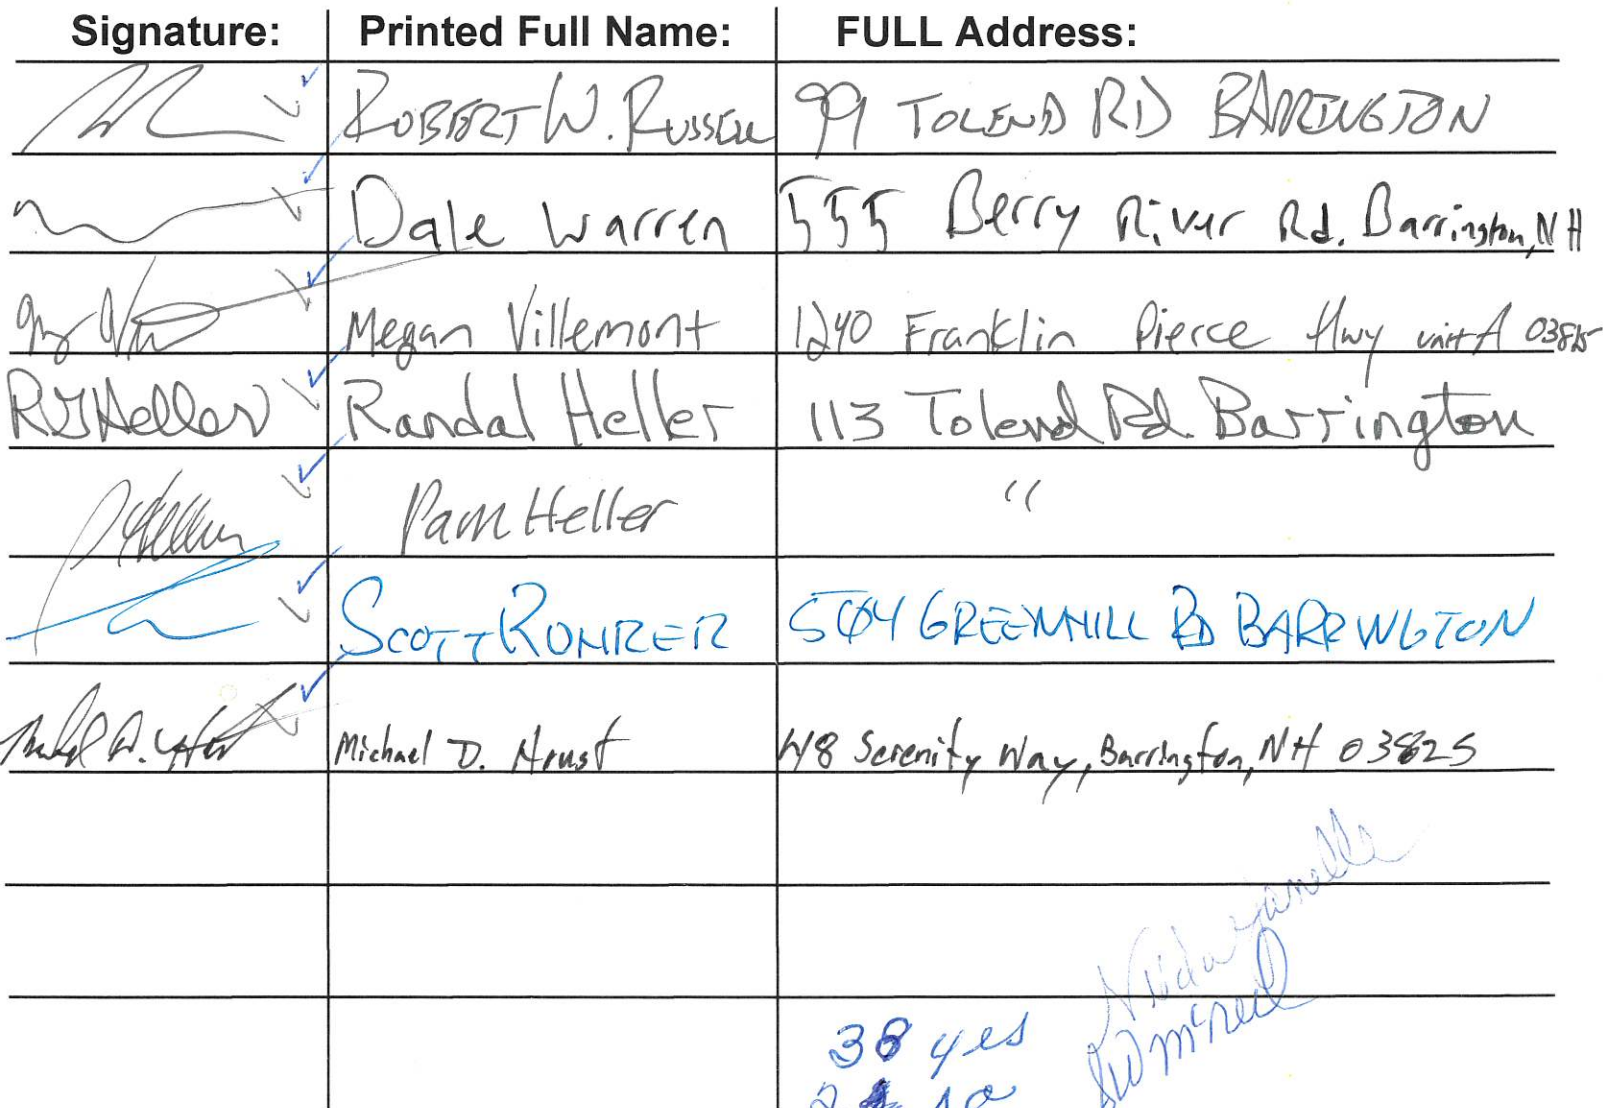 Signature: Printed Full Name: FULL Address:
ROBERT W. RUSSELL 99 TOLEND RD BARRINGTON
Dale Warren 555 Berry River Rd. Barrington, NH
Megan Villemont 1240 Franklin Pierce Hwy unit A 03825
RJHeller Randal Heller 113 Tolend Rd. Barrington
PHeller Pam Heller "
SCOTT ROHRER 504 GREENHILL RD BARRINGTON
Michael D. 48 Serenity Way, Barrington, NH 03825
38 yes